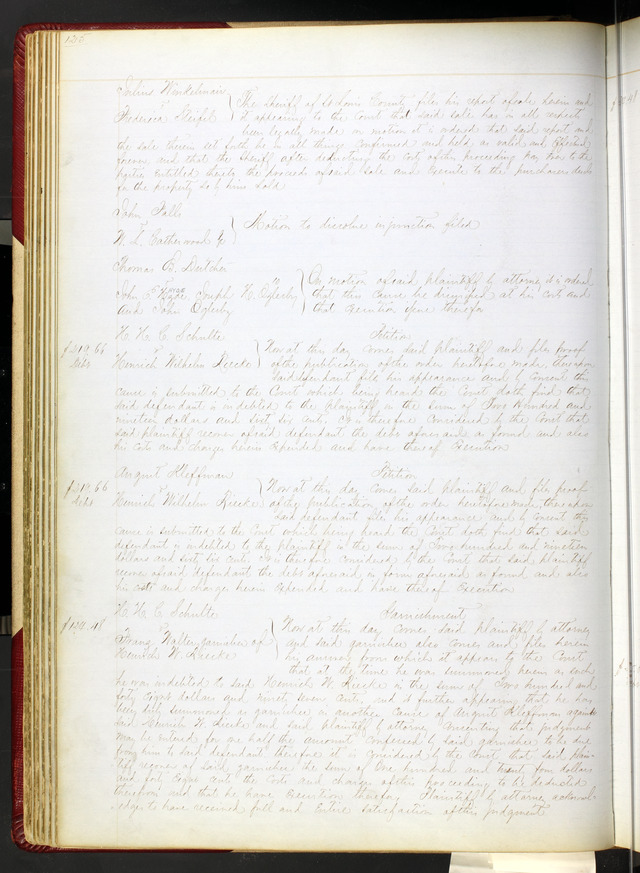 125
Julius Winkelman
vs
Frederica Kleifel
The sheriff of St Louis County files his report of sale herein and
it appearing to the Court that said sale has in all respects
been legally made on motion it is ordered that said report and
the sale therein set forth be in all things confirmed and held as valid and effectual
forever and that the Sheriff after deducting the Costs of this proceeding pay over to the
parties entitled thereto the proceeds of said Sale and Execute to the purchasers deeds
for the property so by him Sold
John Falls
vs
Motion to dissolve injunction filed
Thomas B. Dutcher
vs
John S. Hyde Joseph H. Oglesby
and John Oglesby
On motion of said plaintiff by attorney it is ordered
that this cause be dismissed at his costs and
that Execution issue therefor
H. H. C. Schulte
Petition
$219.66
Debt
vs
Heinrich Wilhelm Riecke
Now at this day comes said plaintiff and files proof
of the publication of the order heretofore made, thereupon
said defendant files his appearance and by consent this
cause is submitted to the Court which being heard the Court doth find that
said defendant is indebted to the plaintiff in the sum of Two hundred and
nineteen dollars and Sixty Six cents. It is therefore Considered by the Court that
said plaintiff recover of said defendant the debt aforesaid as found and also
his costs and charges herein expended and have thereof Execution
August Kleffman
Petition
$219.66
Debt
vs
Heinrich Wilhelm Riecke
Now at this day comes said plaintiff and files proof
of the publication of the order heretofore made, thereupon
said defendant files his appearance and by Consent this
cause is submitted to the Court which being heard the Court doth find that said
defendant is indebted to the plaintiff in the sum of Two hundred and nineteen
dollars and sixty six cents. It is therefore Considered by the Court that said plaintiff
recover of said defendant the debt aforesaid in form aforesaid as found and also
his costs and charges herein expended and have thereof Execution
H. H. C. Schulte
Garnishment
$124.48
vs
Franz Walter garnishee of
Heinrich W. Riecke
Now at this day Comes said plaintiff by attorney
and said garnishee also comes and files herein
his answer from which it appears to the Court
that at the time he was summoned herein as such
he was indebted to said Heinrich W. Riecke in the sum of Two hundred and
forty Eight dollars and ninety seven cents, and it further appearing that he has
been duly summoned as garnishee in another Cause of August Kleffman against
said Heinrich W. Riecke and said plaintiff by attorney consenting that judgment
may be entered for one half the amount confessed by said garnishee to be due
from him to said defendant therefore it is Considered by the Court that said plain-
tiff recover of said garnishee the sum of One hundred and twenty four dollars
and forty Eight and the Costs and charges of this proceeding to be deducted
therefrom and that he have Execution therefor. Plaintiff by attorney acknowl-
edges to have received full and Entire Satisfaction of this judgment